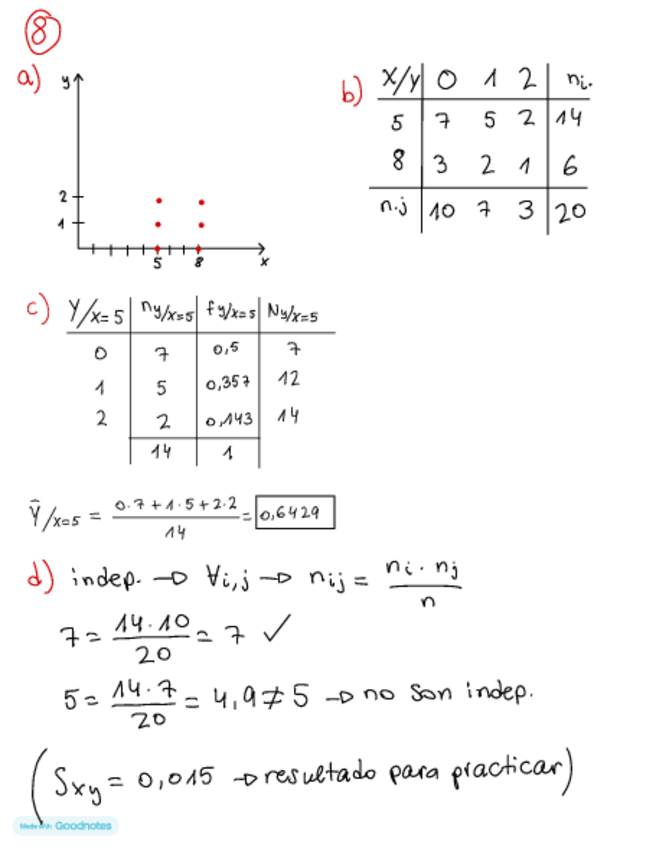 8
a) y
2
1
5 8 x
b) X/Y 0 1 2 ni.
5 7 5 2 14
8 3 2 1 6
n.j 10 7 3 20
c) Y/x=5 ny/x=5 fy/x=5 Ny/x=5
0 7 0,5 7
1 5 0,357 12
2 2 0,143 14
14 1
Ȳ/x=5 = 0·7+1·5+2·2 / 14 = 0,6429
d) indep. → ∀i,j → nij = ni · nj / n
7 = 14·10 / 20 = 7 ✓
5 = 14·7 / 20 = 4,9 ≠ 5 → no son indep.
(Sxy = 0,015 → resultado para practicar)
Made with Goodnotes